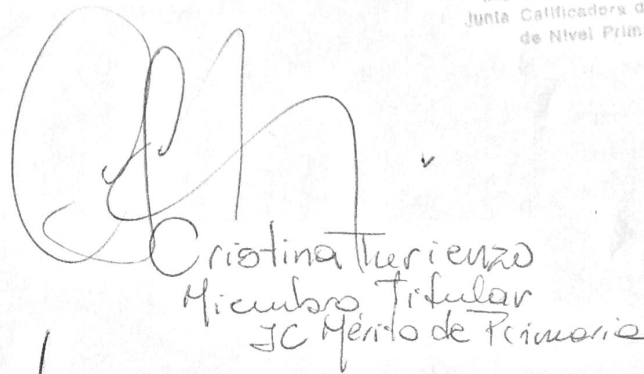 Junta Calificadora d
de Nivel Prim
Cristina Turienzo
Miembro Titular
JC Mérito de Primaria